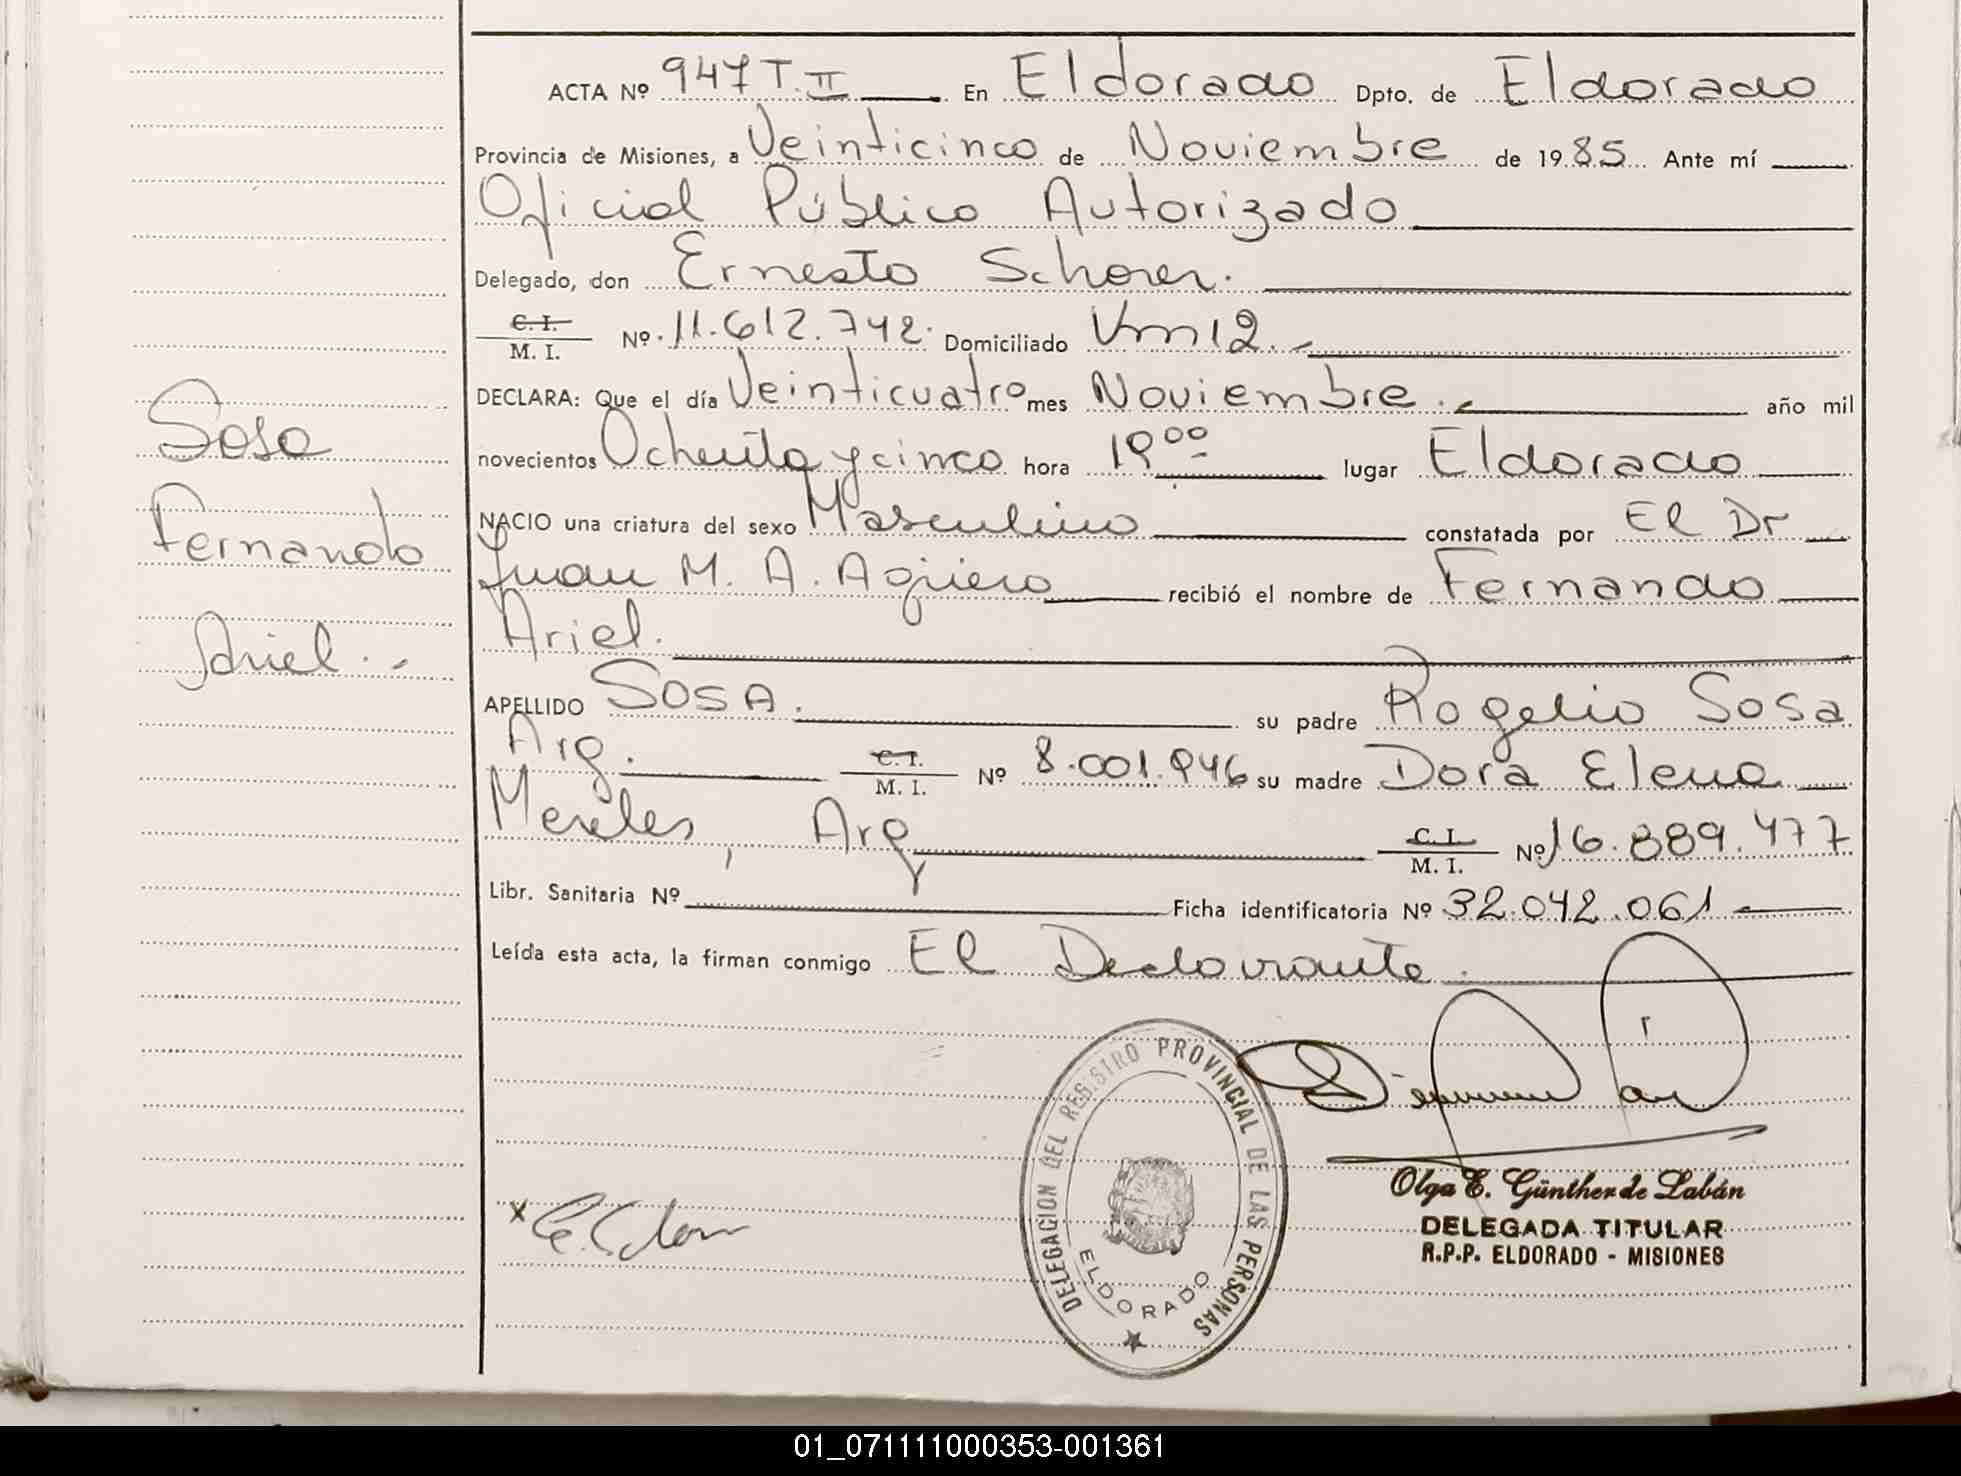 ACTA Nº 947 T. II En Eldorado Dpto. de Eldorado
Provincia de Misiones, a Veinticinco de Noviembre de 1985 Ante mí
Oficial Público Autorizado
Delegado, don Ernesto Schorer.
C. I.
M. I. Nº 11.612.742. Domiciliado Km 12.
DECLARA: Que el día Veinticuatro mes Noviembre. año mil
novecientos Ochenta y cinco hora 19 00 lugar Eldorado
NACIO una criatura del sexo Masculino constatada por El Dr
Juan M. A. Agüero recibió el nombre de Fernando
Ariel.
APELLIDO SOSA. su padre Rogelio Sosa
Arg. C. I. M. I. Nº 8.001.946 su madre Dora Elena
Mereles, Arg C. I. M. I. Nº 16.889.477
Libr. Sanitaria Nº Ficha identificatoria Nº 32.042.061
Leída esta acta, la firman conmigo El Declarante.
Sosa
Fernando
Ariel.
x
DELEGACION DEL REGISTRO PROVINCIAL DE LAS PERSONAS
ELDORADO
Olga E. Günther de Labán
DELEGADA TITULAR
R.P.P. ELDORADO - MISIONES
01_071111000353-001361